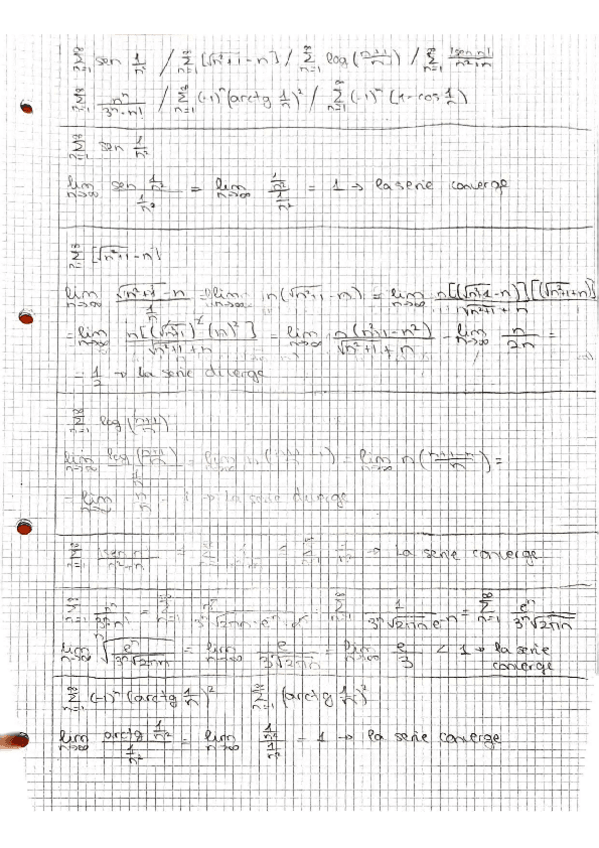 ∑_{n=1}^∞ sen 1/n² / ∑_{n=1}^∞ [√(n²+1) - n] / ∑_{n=1}^∞ log((n+1)/n) / ∑_{n=1}^∞ |sen n|/(n²+n)
∑_{n=1}^∞ nⁿ/(3ⁿ·n!) / ∑_{n=1}^∞ (-1)ⁿ (arctg 1/n)² / ∑_{n=1}^∞ (-1)ⁿ (1-cos 1/n)
∑_{n=1}^∞ sen 1/n²
lim_{n→∞} (sen 1/n²)/(1/n²) = lim_{n→∞} (1/n²)/(1/n²) = 1 → la serie converge
∑_{n=1}^∞ [√(n²+1) - n]
lim_{n→∞} (√(n²+1) - n)/(1/n) = lim_{n→∞} n(√(n²+1) - n) = lim_{n→∞} n[(√(n²+1) - n)][(√(n²+1)+n)]/(√(n²+1) + n)
= lim_{n→∞} n[(√(n²+1))² - (n)²]/(√(n²+1) + n) = lim_{n→∞} n(n²+1-n²)/(√(n²+1) + n) = lim_{n→∞} n/2n =
= 1/2 → la serie diverge
∑_{n=1}^∞ log((n+1)/n)
lim_{n→∞} log((n+1)/n)/(1/n) = lim_{n→∞} n((n+1)/n - 1) = lim_{n→∞} n((n+1-n)/n) =
= lim n/n = 1 → la serie diverge
∑_{n=1}^∞ |sen n|/(n²+n) = → la serie converge
∑_{n=1}^∞ nⁿ/(3ⁿ·n!) = ∑_{n=1}^∞ ∑_{n=1}^∞ 1/(3ⁿ√(2πn) e⁻ⁿ) = ∑_{n=1}^∞ eⁿ/(3ⁿ√(2πn))
lim_{n→∞} ⁿ√(eⁿ/(3ⁿ√(2πn))) = lim_{n→∞} e/(3 ⁿ√(2πn)) = lim_{n→∞} e/3 < 1 → la serie
converge
∑_{n=1}^∞ (-1)ⁿ (arctg 1/n)² ∑_{n=1}^∞ (arctg 1/n)²
lim_{n→∞} (arctg 1/n²)/(1/n²) = lim_{n→∞} (1/n²)/(1/n²) = 1 → la serie converge